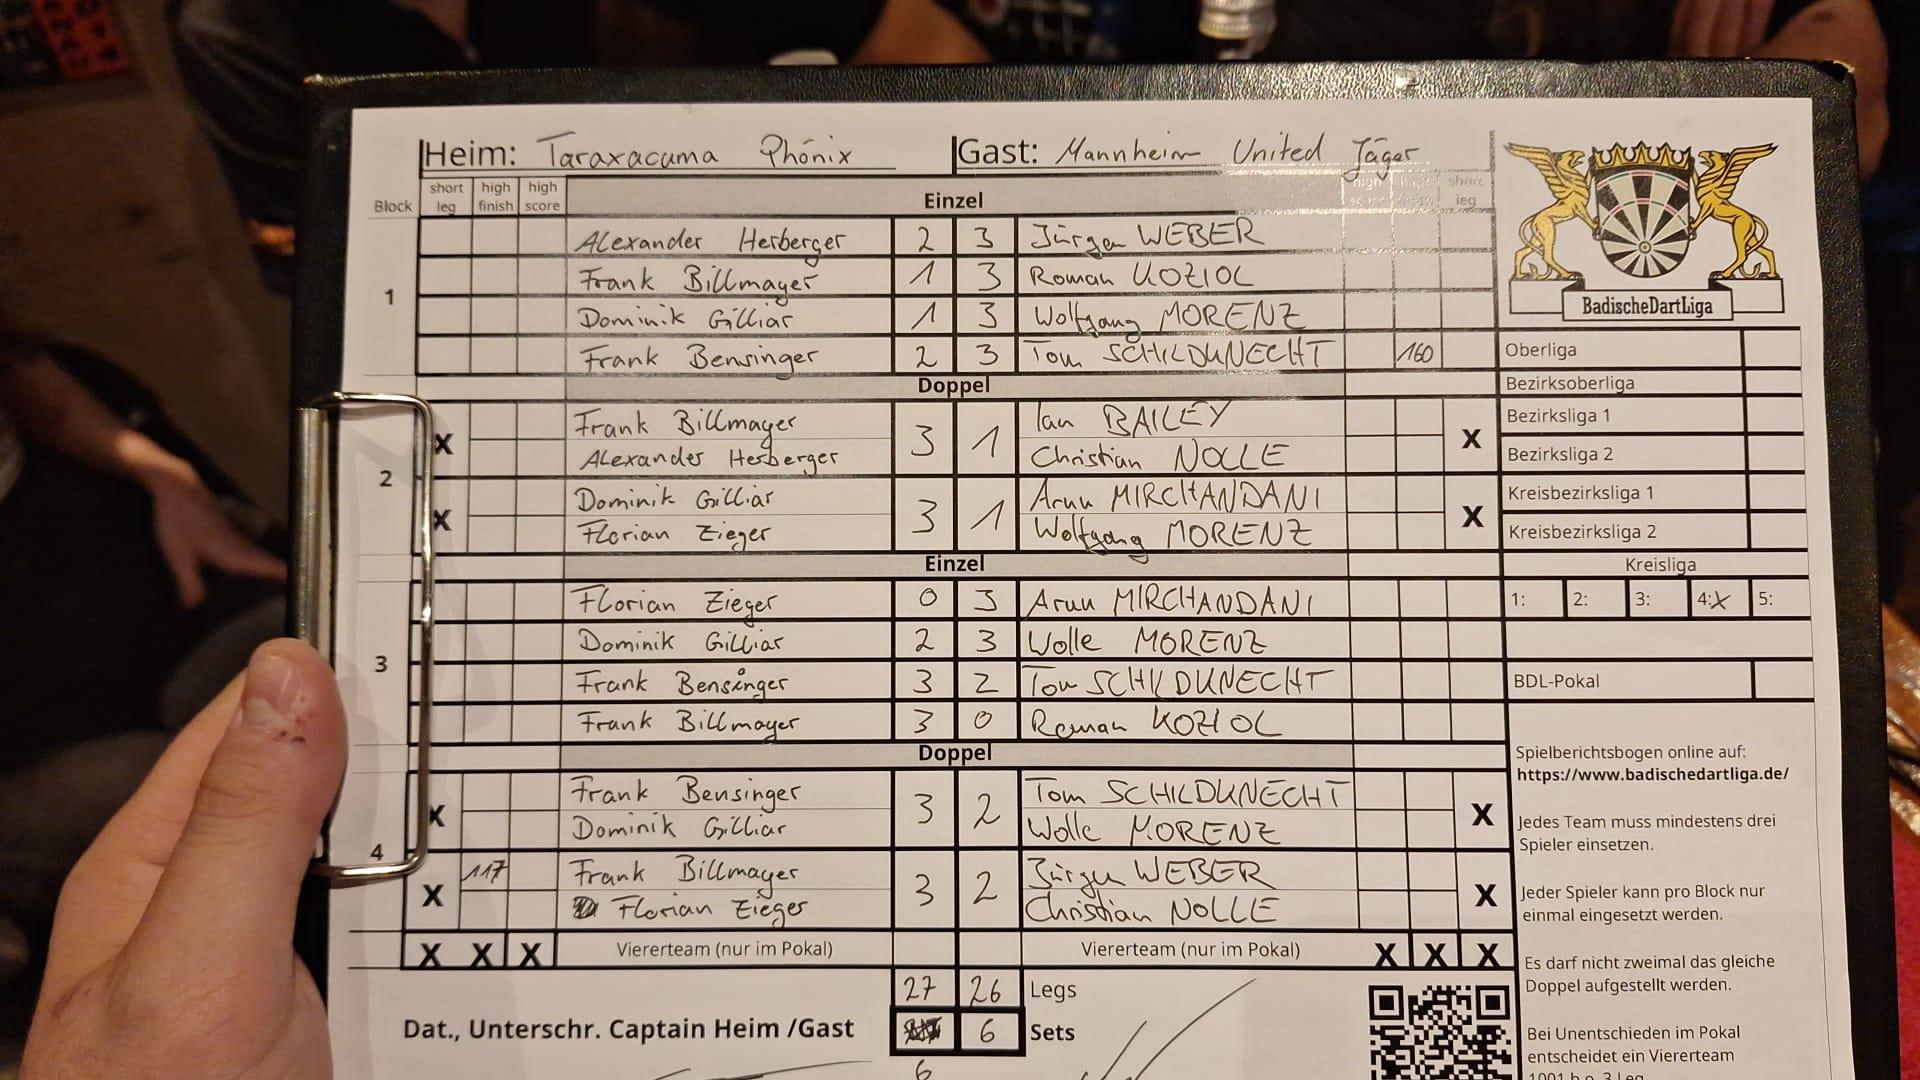 Heim: Taraxacuma Phönix Gast: Mannheim United Jäger
Block short leg high finish high score Einzel high short leg
1
Alexander Herberger 2 3 Jürgen WEBER
Frank Billmayer 1 3 Roman KOZIOL
Dominik Gilliar 1 3 Wolfgang MORENZ
Frank Bensinger 2 3 Tom SCHILDKNECHT 160
Doppel
2
X Frank Billmayer 3 1 Ian BAILEY X
Alexander Herberger Christian NOLLE
X Dominik Gilliar 3 1 Arun MIRCHANDANI X
Florian Zieger Wolfgang MORENZ
Einzel
3
Florian Zieger 0 3 Arun MIRCHANDANI
Dominik Gilliar 2 3 Wolle MORENZ
Frank Bensinger 3 2 Tom SCHILDKNECHT
Frank Billmayer 3 0 Roman KOZIOL
Doppel
4
X Frank Bensinger 3 2 Tom SCHILDKNECHT X
Dominik Gilliar Wolle MORENZ
X 117 Frank Billmayer 3 2 Jürgen WEBER X
Florian Zieger Christian NOLLE
X X X Viererteam (nur im Pokal) Viererteam (nur im Pokal) X X X
27 26 Legs
Dat., Unterschr. Captain Heim /Gast 6 Sets
6
BadischeDartLiga
Oberliga
Bezirksoberliga
Bezirksliga 1
Bezirksliga 2
Kreisbezirksliga 1
Kreisbezirksliga 2
Kreisliga
1: 2: 3: 4:X 5:
BDL-Pokal
Spielberichtsbogen online auf:
https://www.badischedartliga.de/
Jedes Team muss mindestens drei
Spieler einsetzen.
Jeder Spieler kann pro Block nur
einmal eingesetzt werden.
Es darf nicht zweimal das gleiche
Doppel aufgestellt werden.
Bei Unentschieden im Pokal
entscheidet ein Viererteam
1001 b.o. 3 Leg